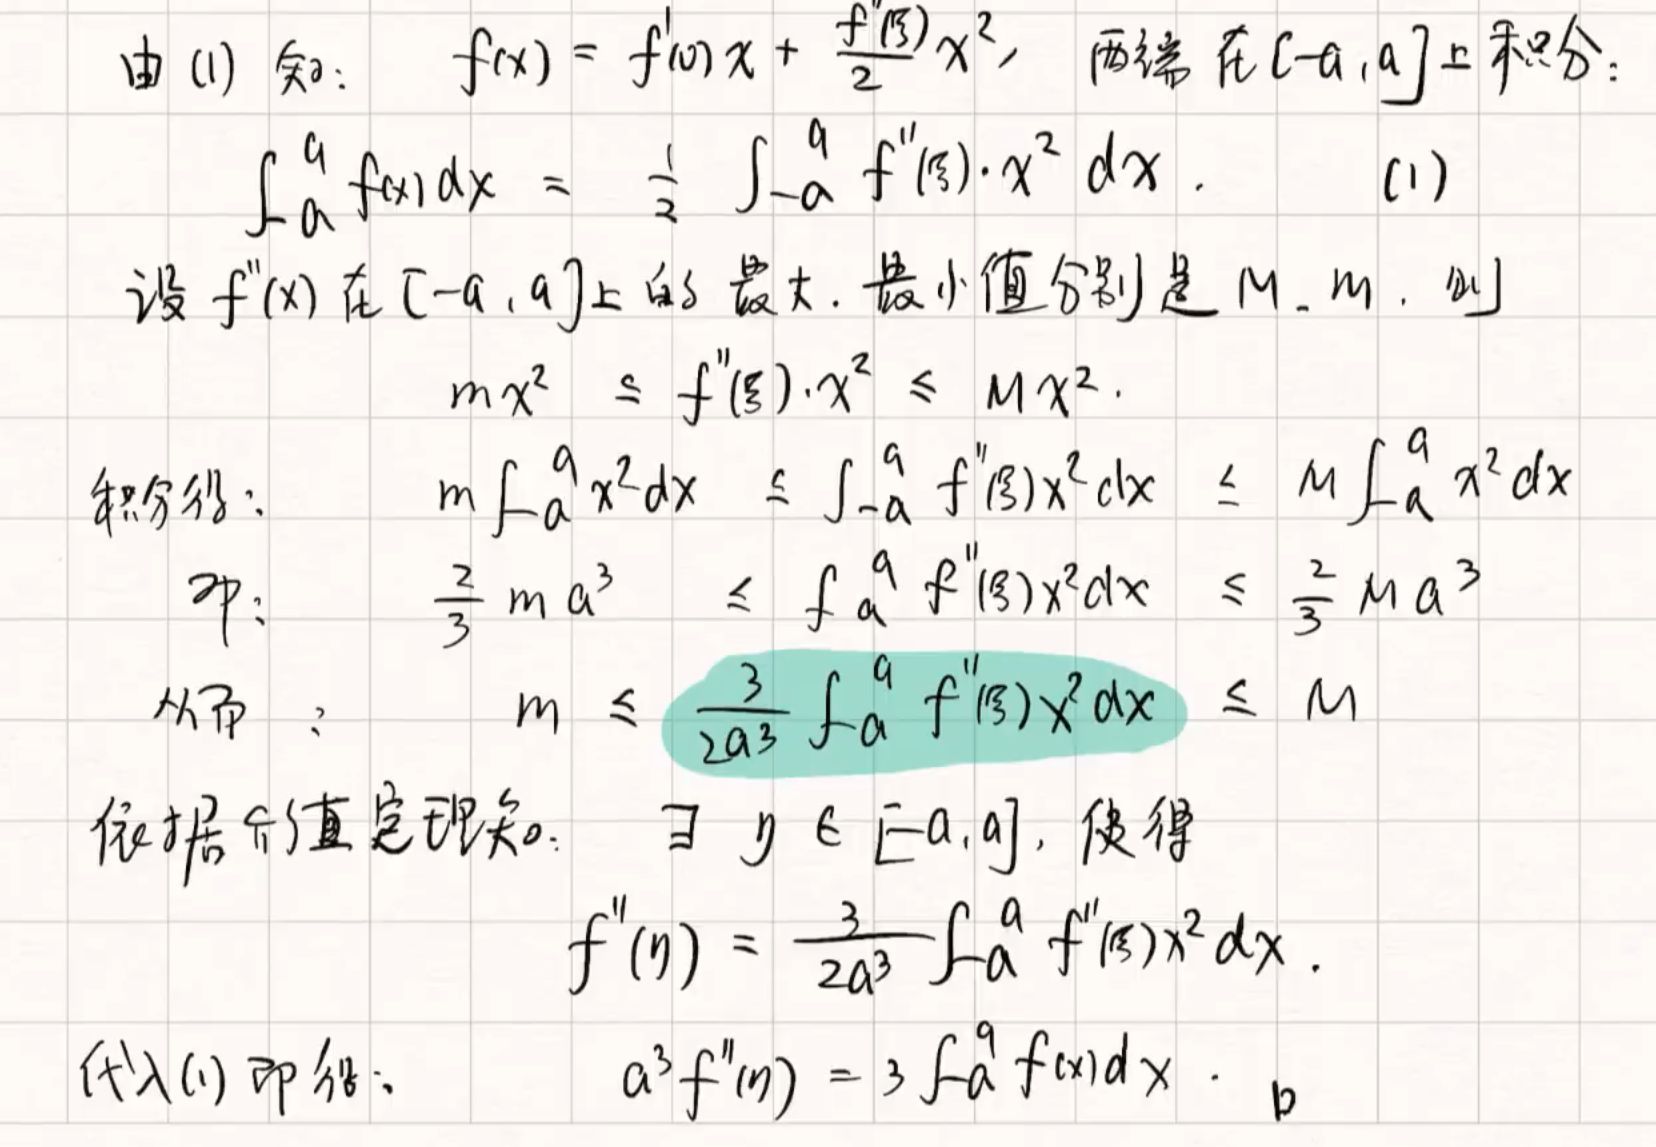 由 (1) 知: f(x) = f'(0)x + f''(ξ)/2 x², 两端在[-a,a]上积分:
∫_{-a}^{a} f(x)dx = 1/2 ∫_{-a}^{a} f''(ξ)·x² dx. (1)
设 f''(x) 在 [-a,a]上的最大.最小值分别是 M、m. 则
mx² ≤ f''(ξ)·x² ≤ Mx².
积分得: m∫_{-a}^{a} x²dx ≤ ∫_{-a}^{a} f''(ξ)x²dx ≤ M∫_{-a}^{a} x²dx
即: 2/3 ma³ ≤ ∫_{-a}^{a} f''(ξ)x²dx ≤ 2/3 Ma³
从而: m ≤ 3/(2a³) ∫_{-a}^{a} f''(ξ)x²dx ≤ M
依据介值定理知: ∃ η ∈ [-a,a], 使得
f''(η) = 3/(2a³) ∫_{-a}^{a} f''(ξ)x²dx.
代入(1)即得: a³f''(η) = 3∫_{-a}^{a} f(x)dx.